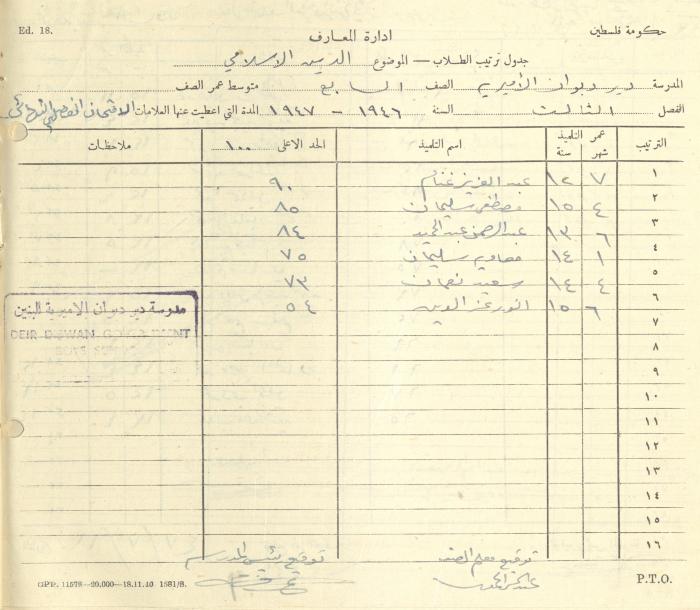 Ed. 18.
حكومة فلسطين
ادارة المعارف
جدول ترتيب الطلاب — الموضوع الدين الاسلامي
المدرسة دير ديوان الأميرية الصف السابع متوسط عمر الصف
الفصل الثالث السنة ١٩٤٦ - ١٩٤٧ المدة التي اعطيت عنها العلامات الامتحان الفصلي النهائي
الترتيب عمر التلميذ شهر سنة اسم التلميذ الحد الاعلى ١٠٠ ملاحظات
١ ٧ ١٢ عبد العزيز غنام ٩٠
٢ ٤ ١٥ مصطفى سليمان ٨٥
٣ ٦ ١٣ عبد الرحمن عبد المجيد ٨٤
٤ ١ ١٤ سليمان ٧٥
٥ ٤ ١٤ سعيد نعمان ٧٣
٦ ٦ ١٥ انور عز الدين ٥٤
٧
٨
٩
١٠
١١
١٢
١٣
١٤
١٥
١٦
مدرسة دير ديوان الاميرية للبنين
DEIR DEWAN GOVERNMENT
BOYS SCHOOL
توقيع معلم الصف توقيع رئيس المدرسة
G.P.P. 11578—20,000—18.11.40 1581/S.
P.T.O.